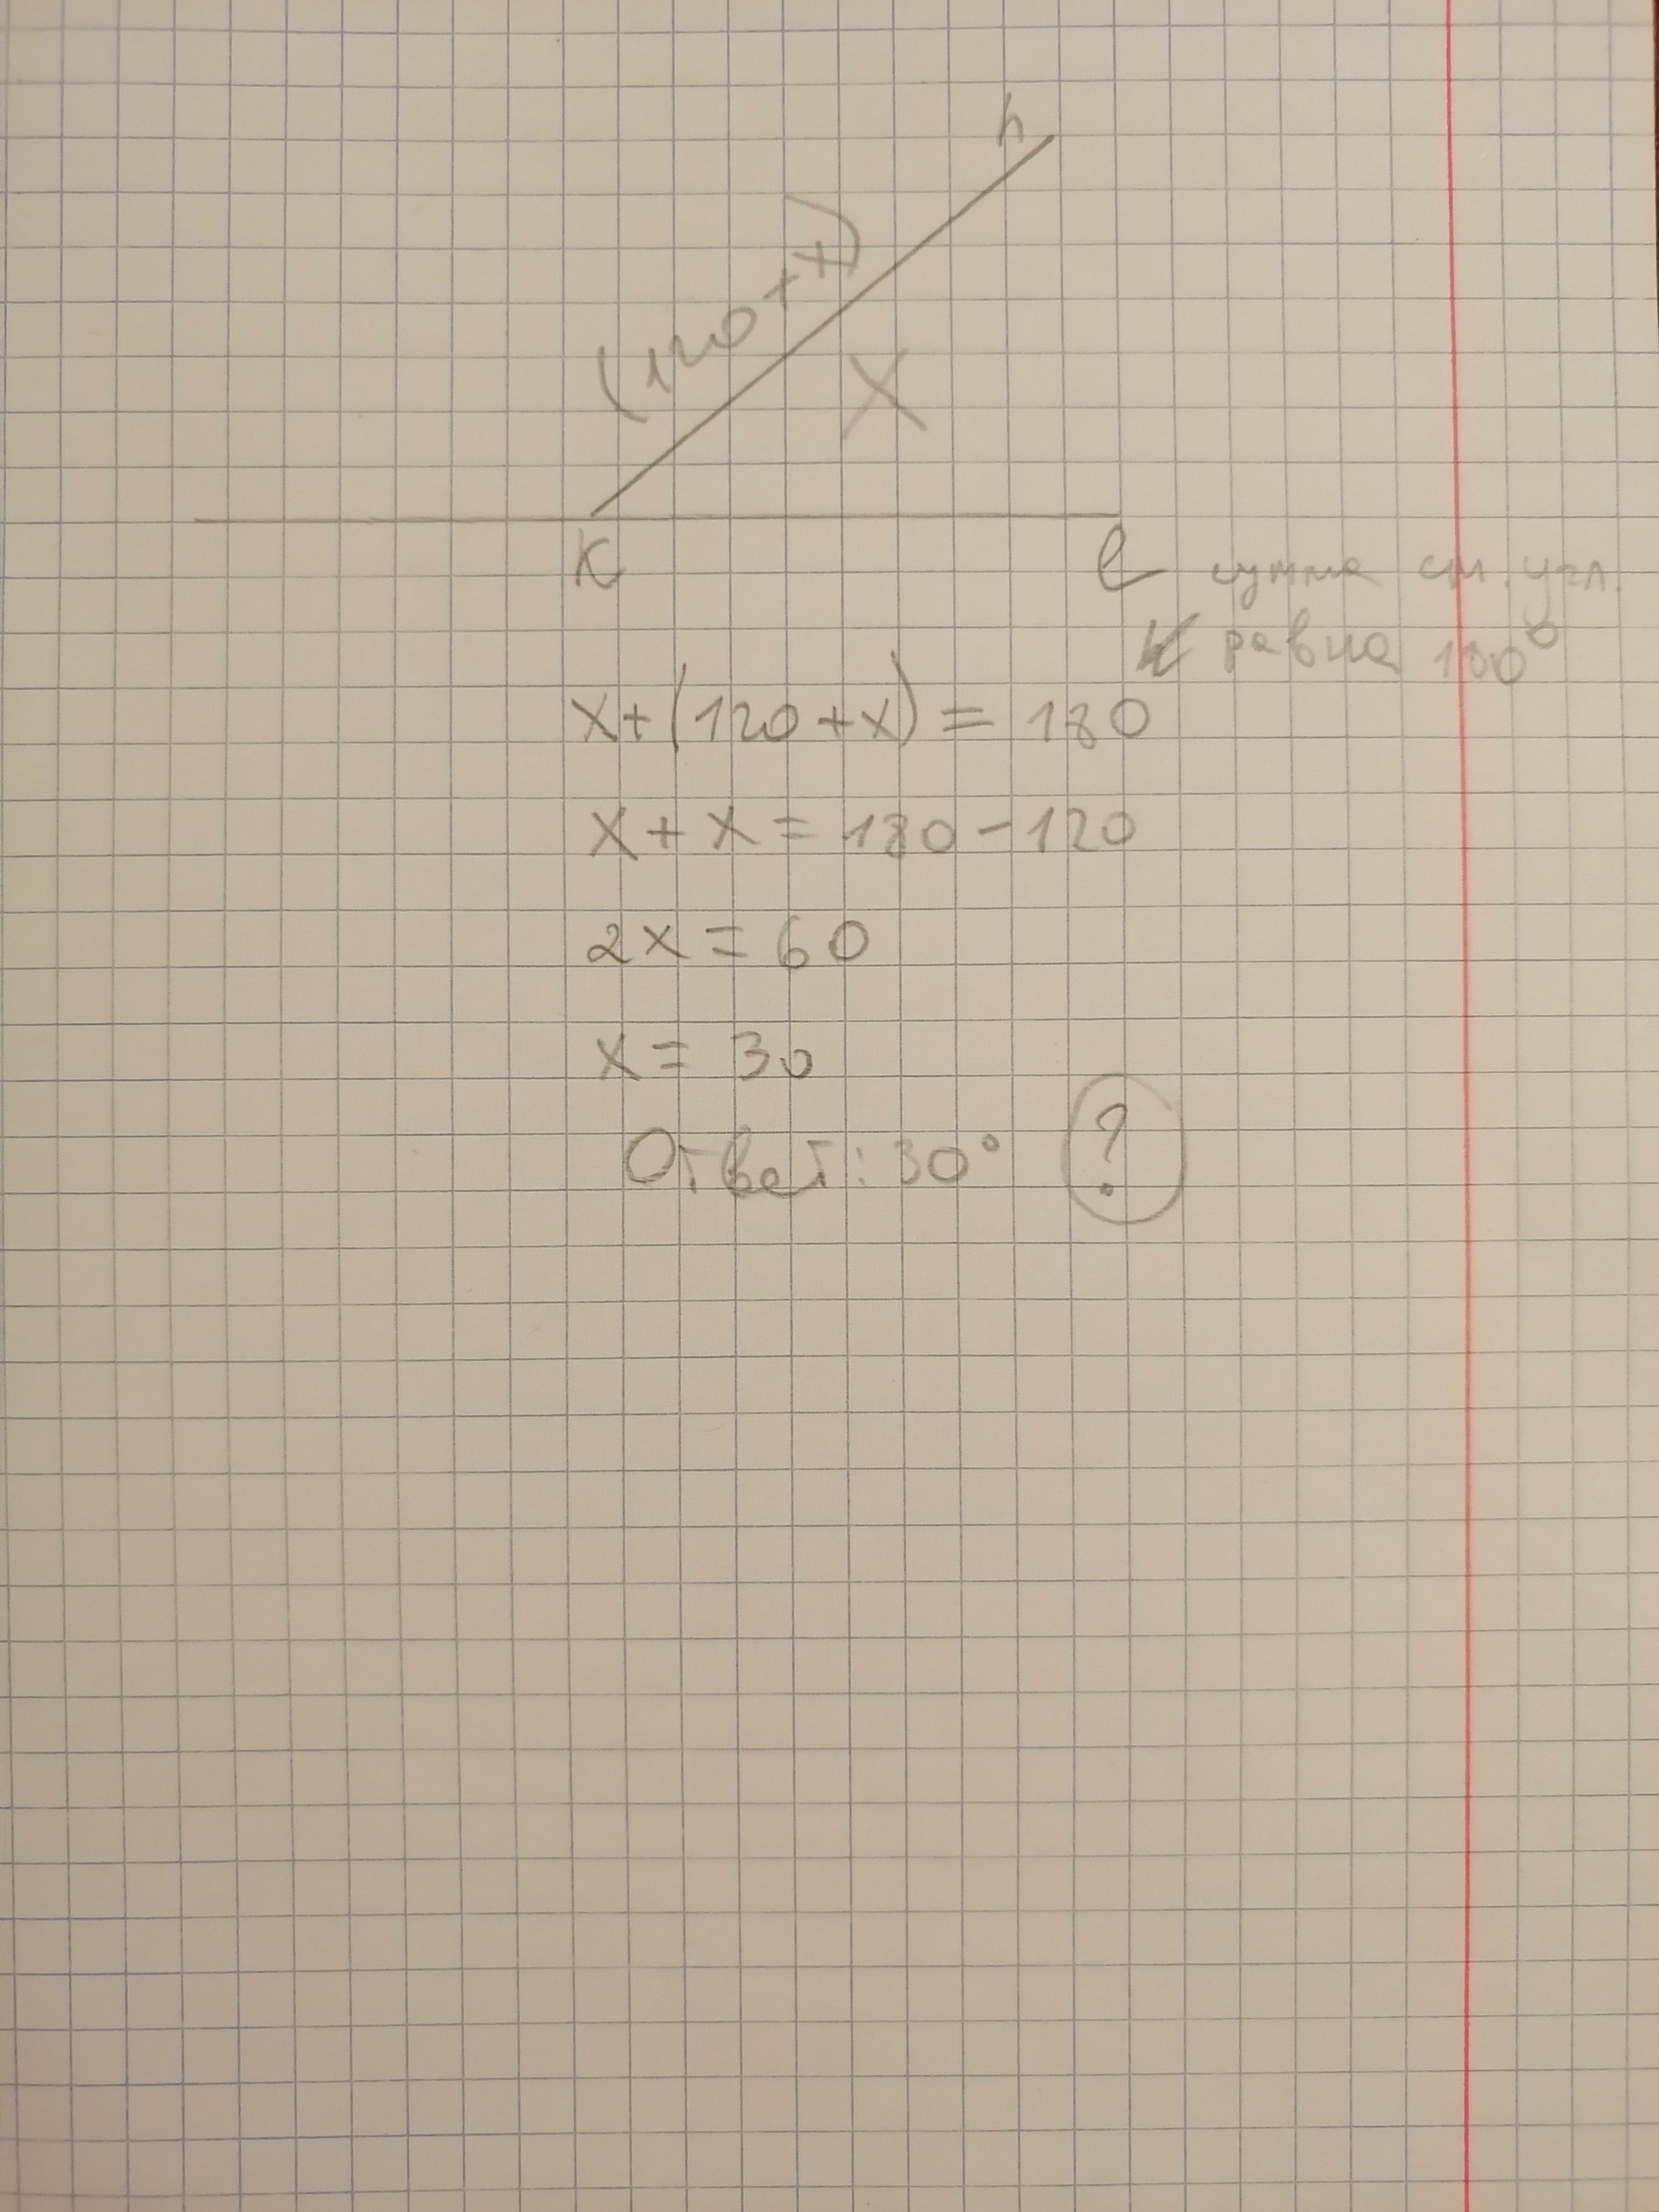 h
(120+x)
x
K
l
сумма см. угл.
равна 180°
x+(120+x) = 180
x + x = 180 - 120
2x = 60
x = 30
Ответ: 30°
?